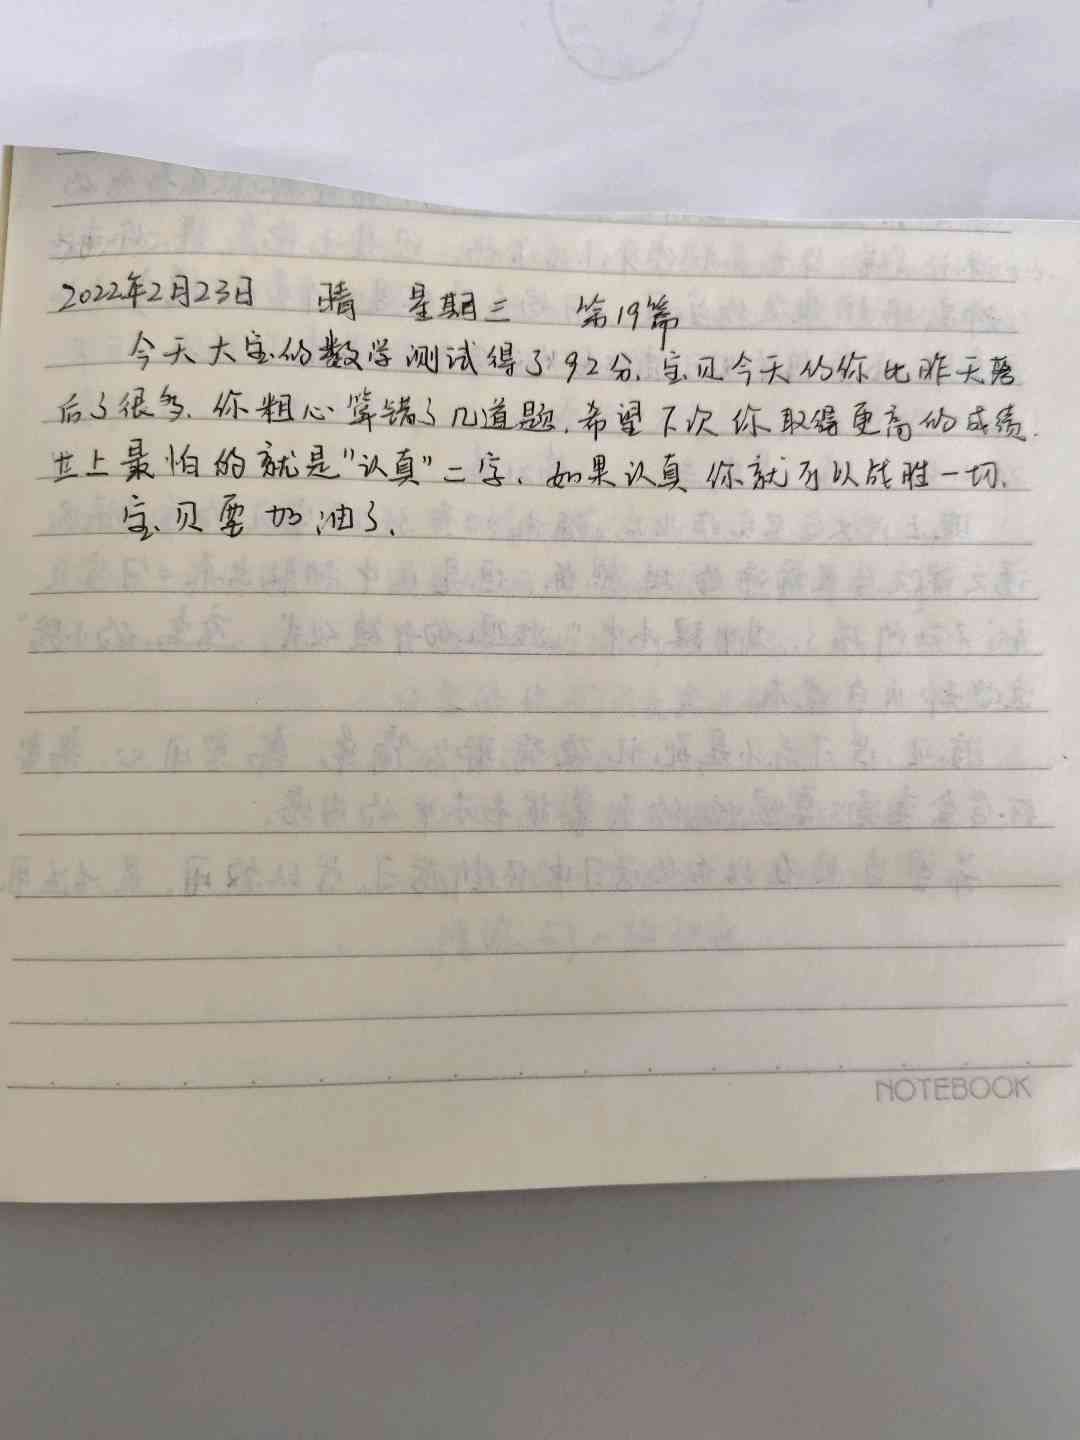 2022年2月23日 晴 星期三 第19篇
今天大宝的数学测试得了92分.宝贝今天的你比昨天落
后了很多.你粗心算错了几道题.希望下次你取得更高的成绩.
世上最怕的就是"认真"二字.如果认真你就可以战胜一切.
宝贝要加油了.
NOTEBOOK